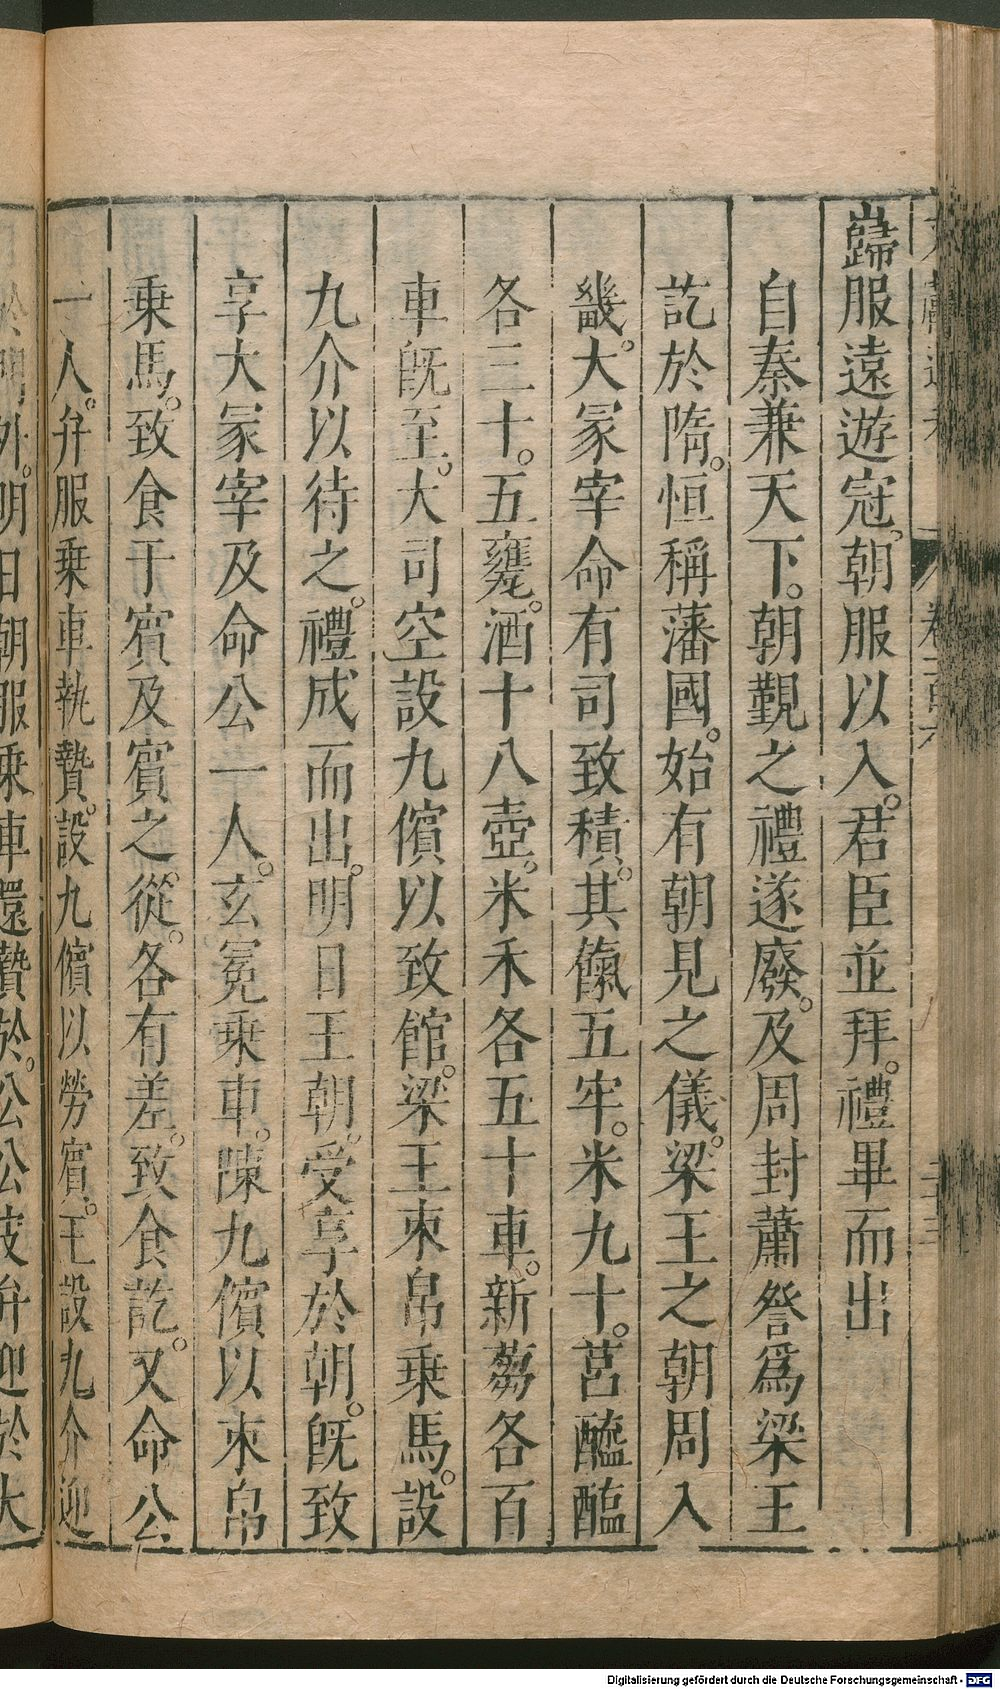 歸服遠遊冠。朝服以入。君臣並拜。禮畢而出
自秦兼天下。朝覲之禮遂廢。及周封蕭詧爲梁王
訖於隋。恒稱藩國。始有朝見之儀。梁王之朝周入
畿。大冢宰命有司致積。其餼五牢。米九十。筥醯醢
各三十。五甕。酒十八壺。米禾各五十車。新芻各百
車旣至。大司空設九儐以致館。梁王束帛乗馬。設
九介以待之。禮成而出。明日王朝。受享於朝。旣致
享大冢宰及命公一人。玄冕乗車。陳九儐以束帛
乗馬。致食于賔及賔之。從。各有差。致食訖。又命公
一人。弁服乗車執贄。設九儐以勞賔。王設九介迎
於門外。明日朝服乗車還贄於。公公皮弁迎於大
Digitalisierung gefördert durch die Deutsche Forschungsgemeinschaft - DFG